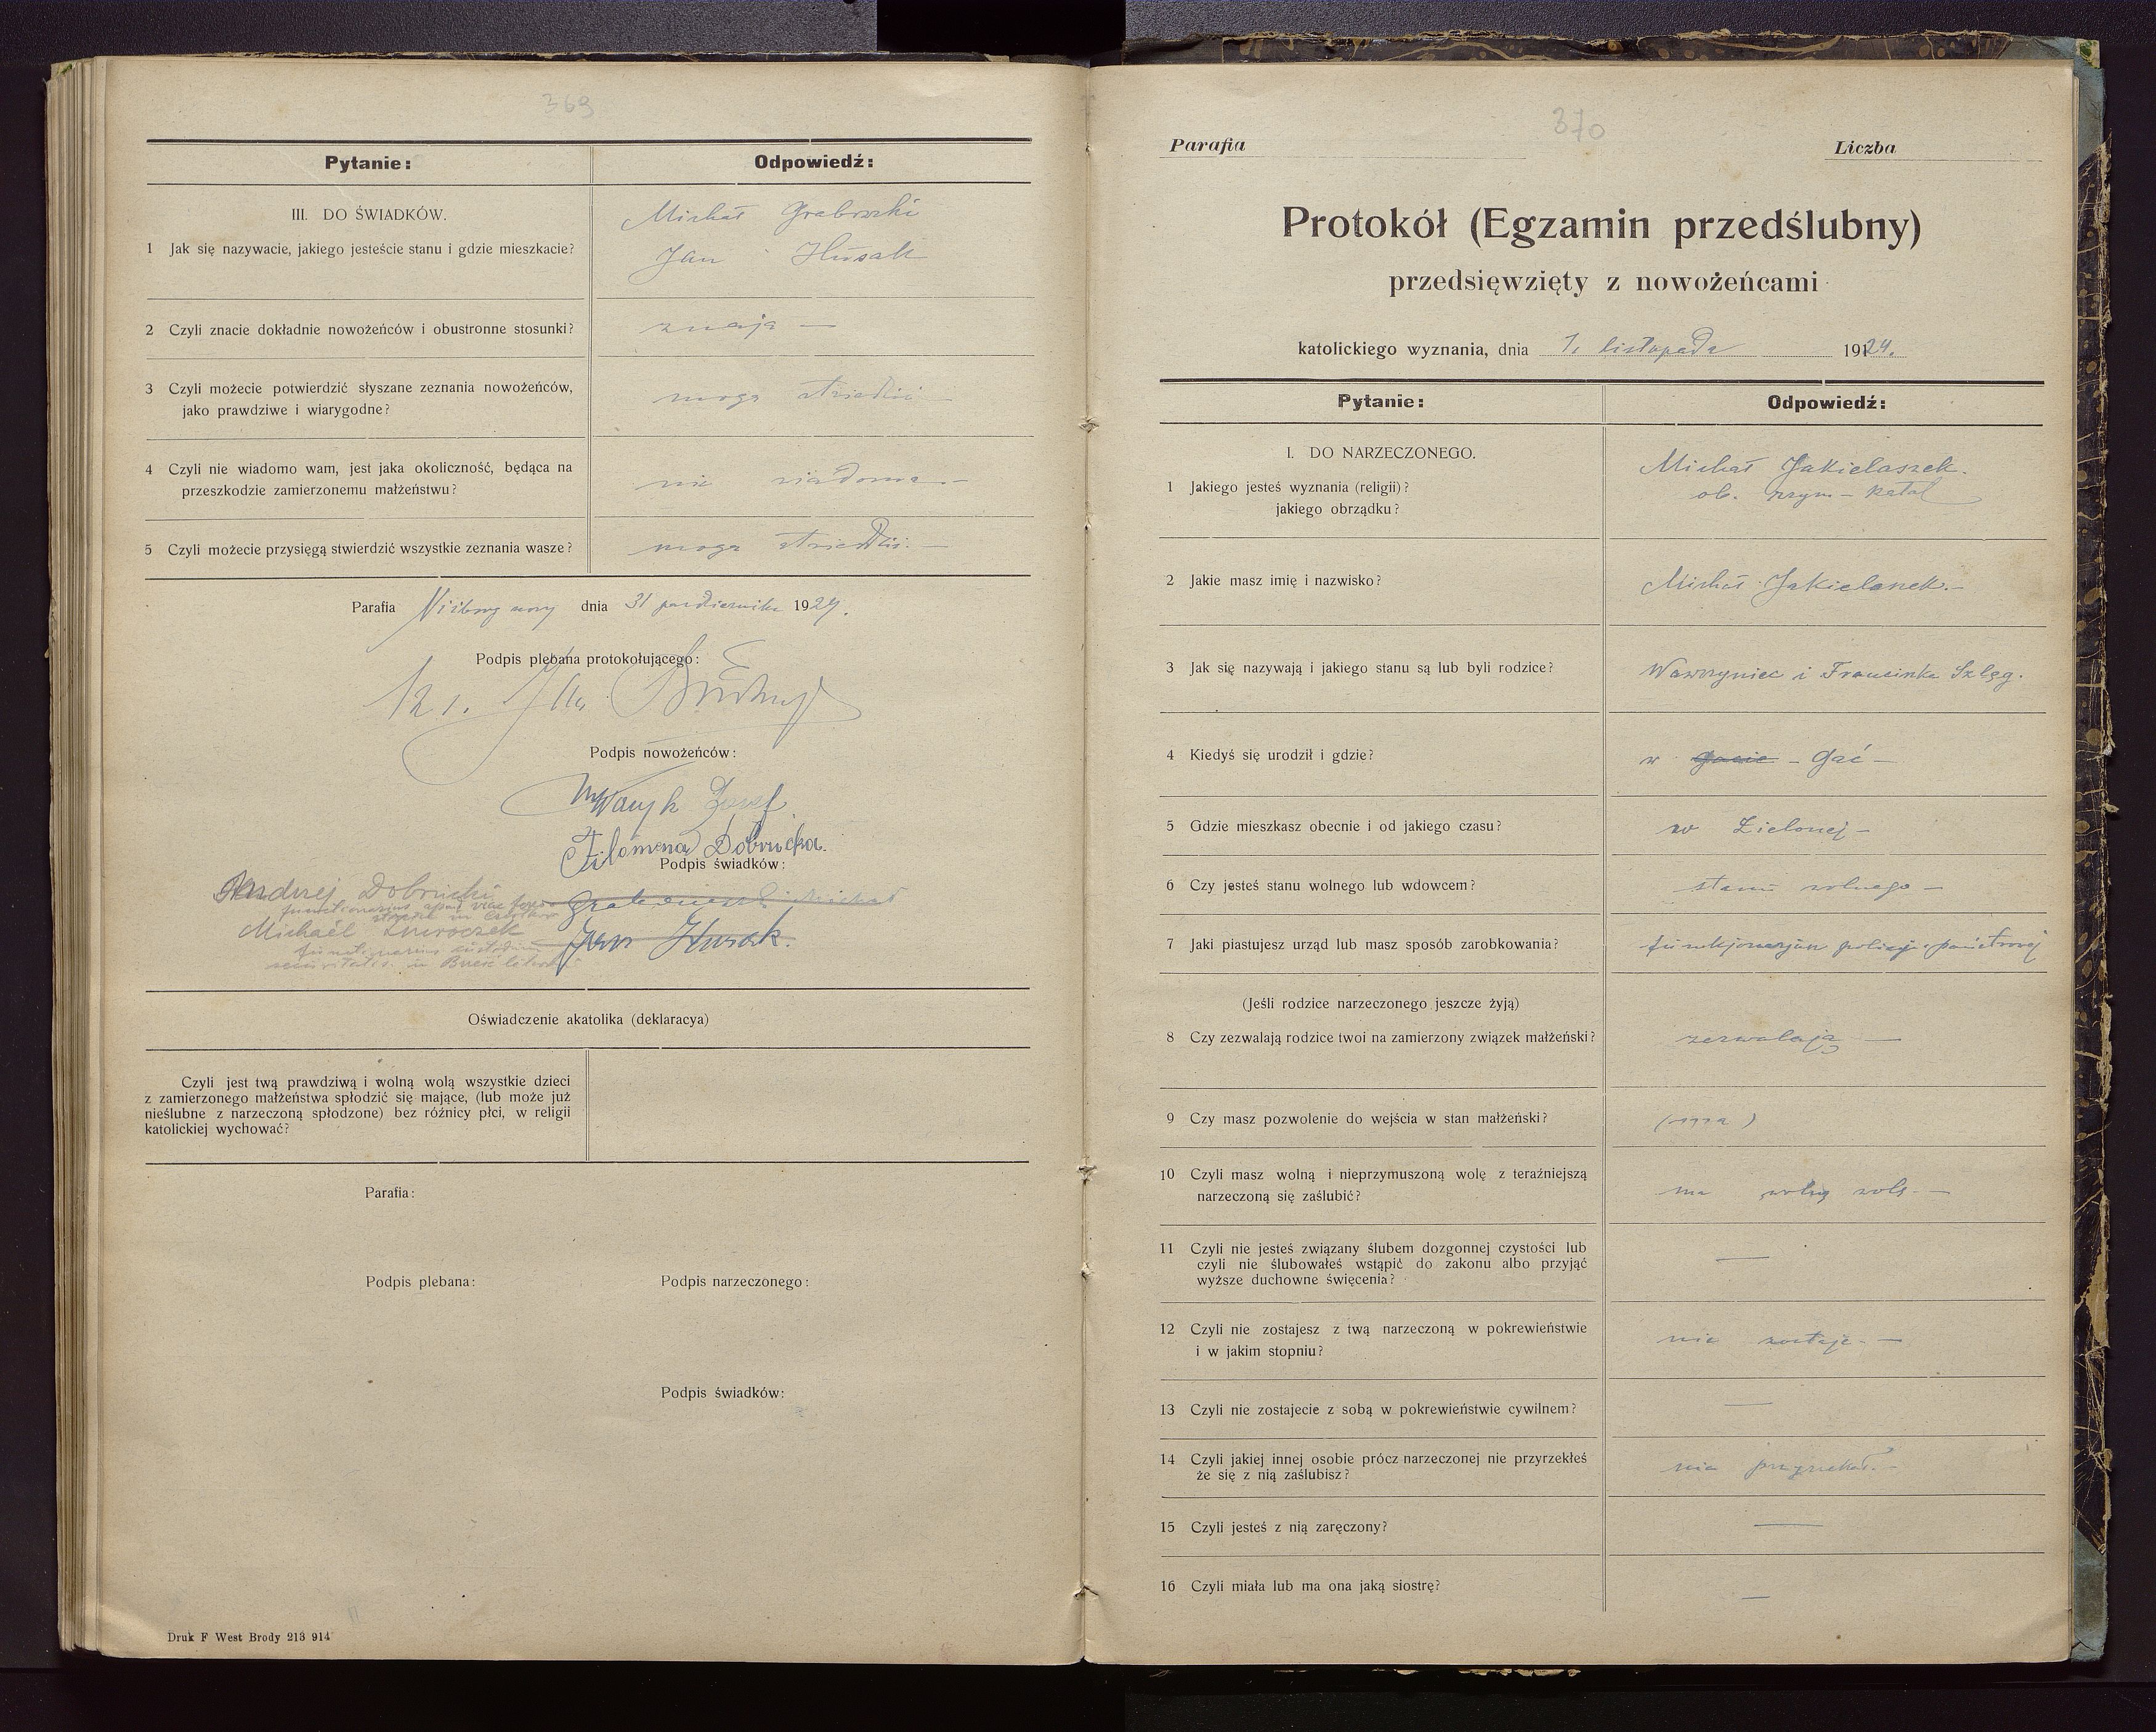 369
Pytanie:
Odpowiedź:
III. DO ŚWIADKÓW.
1 Jak się nazywacie, jakiego jesteście stanu i gdzie mieszkacie?
Michał Grabowski
Jan Husak
2 Czyli znacie dokładnie nowożeńców i obustronne stosunki?
znają —
3 Czyli możecie potwierdzić słyszane zeznania nowożeńców,
jako prawdziwe i wiarygodne?
mogą
4 Czyli nie wiadomo wam, jest jaka okoliczność, będąca na
przeszkodzie zamierzonemu małżeństwu?
nie wiadomo. —
5 Czyli możecie przysięgą stwierdzić wszystkie zeznania wasze?
mogą
Parafia dnia 31 października 1924.
Podpis plebana protokołującego:
Podpis nowożeńców:
Józef
Filomena Dobrucka.
Podpis świadków:
Andrzej Dobrucki
Michaël
Jan Husak.
Oświadczenie akatolika (deklaracya)
Czyli jest twą prawdziwą i wolną wolą wszystkie dzieci
z zamierzonego małżeństwa spłodzić się mające, (lub może już
nieślubne z narzeczoną spłodzone) bez różnicy płci, w religii
katolickiej wychować?
Parafia:
Podpis plebana:
Podpis narzeczonego:
Podpis świadków:
Druk F West Brody 213 914
370
Parafia
Liczba
Protokół (Egzamin przedślubny)
przedsięwzięty z nowożeńcami
katolickiego wyznania, dnia 1. listopada 1924.
Pytanie:
Odpowiedź:
I. DO NARZECZONEGO.
1 Jakiego jesteś wyznania (religii)?
jakiego obrządku?
Michał Jakielaszek.
ob. rzym - katol
2 Jakie masz imię i nazwisko?
Michał Jakielaszek. —
3 Jak się nazywają i jakiego stanu są lub byli rodzice?
Wawrzyniec i Franciszka Szląg.
4 Kiedyś się urodził i gdzie?
w Gacie — Gać —
5 Gdzie mieszkasz obecnie i od jakiego czasu?
w Zielonej —
6 Czy jesteś stanu wolnego lub wdowcem?
stanu wolnego —
7 Jaki piastujesz urząd lub masz sposób zarobkowania?
funkcjonarjusz policji państwowej
(Jeśli rodzice narzeczonego jeszcze żyją)
8 Czy zezwalają rodzice twoi na zamierzony związek małżeński?
zezwalają —
9 Czy masz pozwolenie do wejścia w stan małżeński?
(ma)
10 Czyli masz wolną i nieprzymuszoną wolę z teraźniejszą
narzeczoną się zaślubić?
ma wolną wolę. —
11 Czyli nie jesteś związany ślubem dozgonnej czystości lub
czyli nie ślubowałeś wstąpić do zakonu albo przyjąć
wyższe duchowne święcenia?
—
12 Czyli nie zostajesz z twą narzeczoną w pokrewieństwie
i w jakim stopniu?
nie zostaje. —
13 Czyli nie zostajecie z sobą w pokrewieństwie cywilnem?
—
14 Czyli jakiej innej osobie prócz narzeczonej nie przyrzekłeś
że się z nią zaślubisz?
nie przyrzekał. —
15 Czyli jesteś z nią zaręczony?
—
16 Czyli miała lub ma ona jaką siostrę?
—